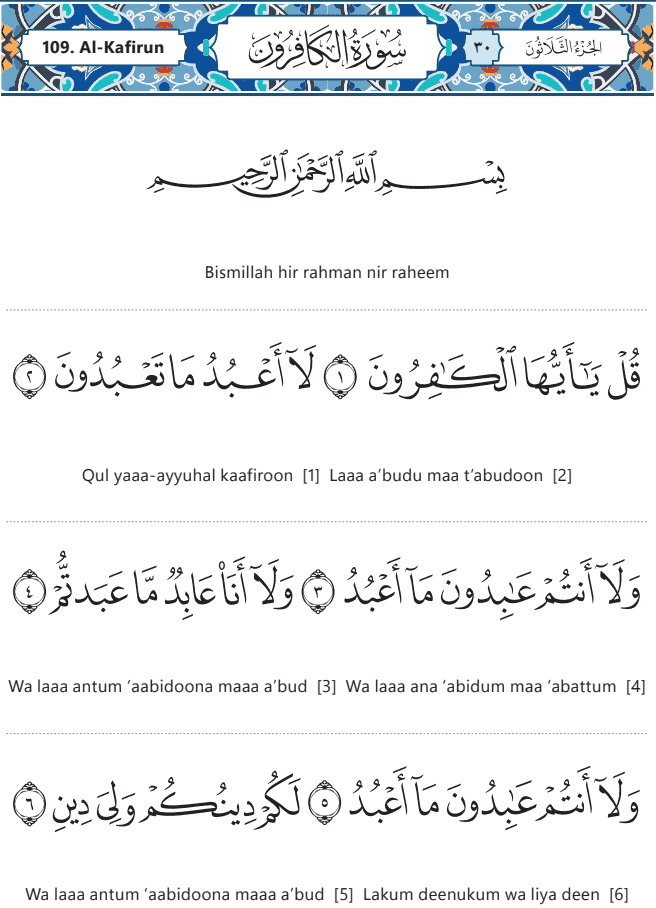 109. Al-Kafirun سُورَةُ الكَافِرُونَ ٣٠ الجُزْءُ الثَّلَاثُونَ
بِسْمِ ٱللَّهِ ٱلرَّحْمَٰنِ ٱلرَّحِيمِ
Bismillah hir rahman nir raheem
قُلْ يَـٰٓأَيُّهَا ٱلْكَـٰفِرُونَ ١ لَآ أَعْبُدُ مَا تَعْبُدُونَ ٢
Qul yaaa-ayyuhal kaafiroon [1] Laaa a’budu maa t’abudoon [2]
وَلَآ أَنتُمْ عَـٰبِدُونَ مَآ أَعْبُدُ ٣ وَلَآ أَنَا۠ عَابِدٌ مَّا عَبَدتُّمْ ٤
Wa laaa antum ‘aabidoona maaa a’bud [3] Wa laaa ana ‘abidum maa ‘abattum [4]
وَلَآ أَنتُمْ عَـٰبِدُونَ مَآ أَعْبُدُ ٥ لَكُمْ دِينُكُمْ وَلِىَ دِينِ ٦
Wa laaa antum ‘aabidoona maaa a’bud [5] Lakum deenukum wa liya deen [6]